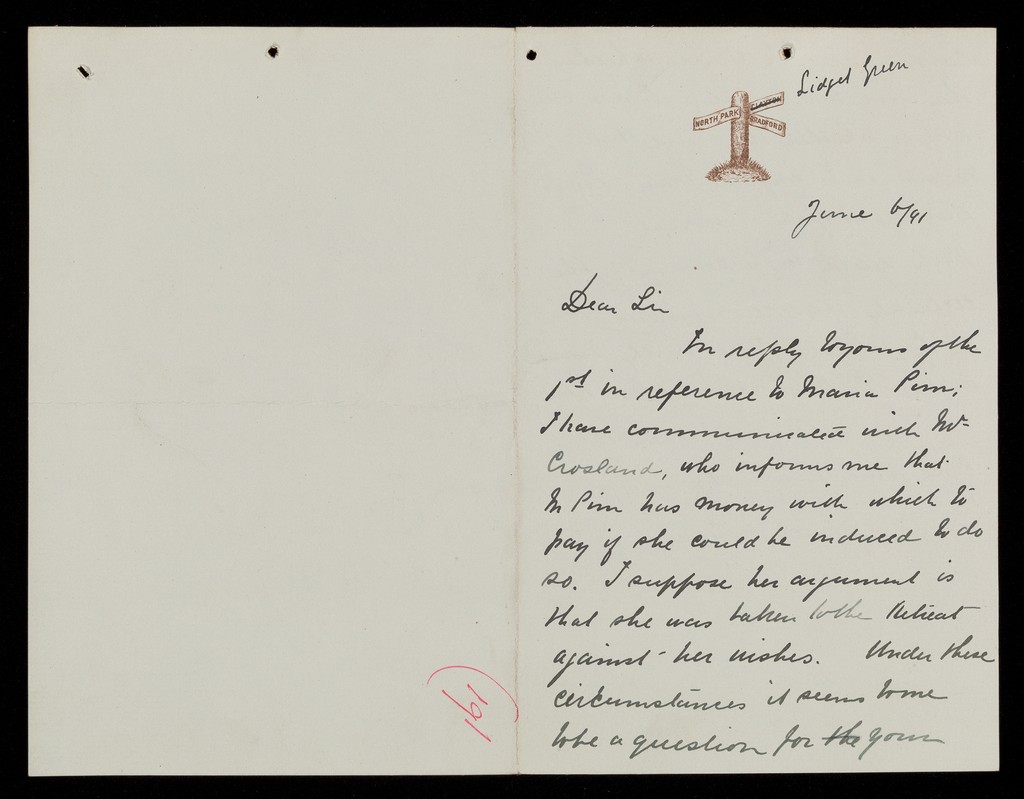 Lidget Green
CLAYTON
NORTH PARK
BRADFORD
June 6/91
Dear Sir
In reply to yours of the
1st in reference to Maria Pim;
I have communicated with Mr
Crosland, who informs me that
M Pim has money with which to
pay if she could be induced to do
so. I suppose her argument is
that she was taken to the Retreat
against her wishes. Under these
circumstances it seems to me
to be a question for the your
191